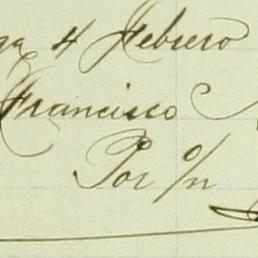 4 Febrero
Francisco
Por o/n